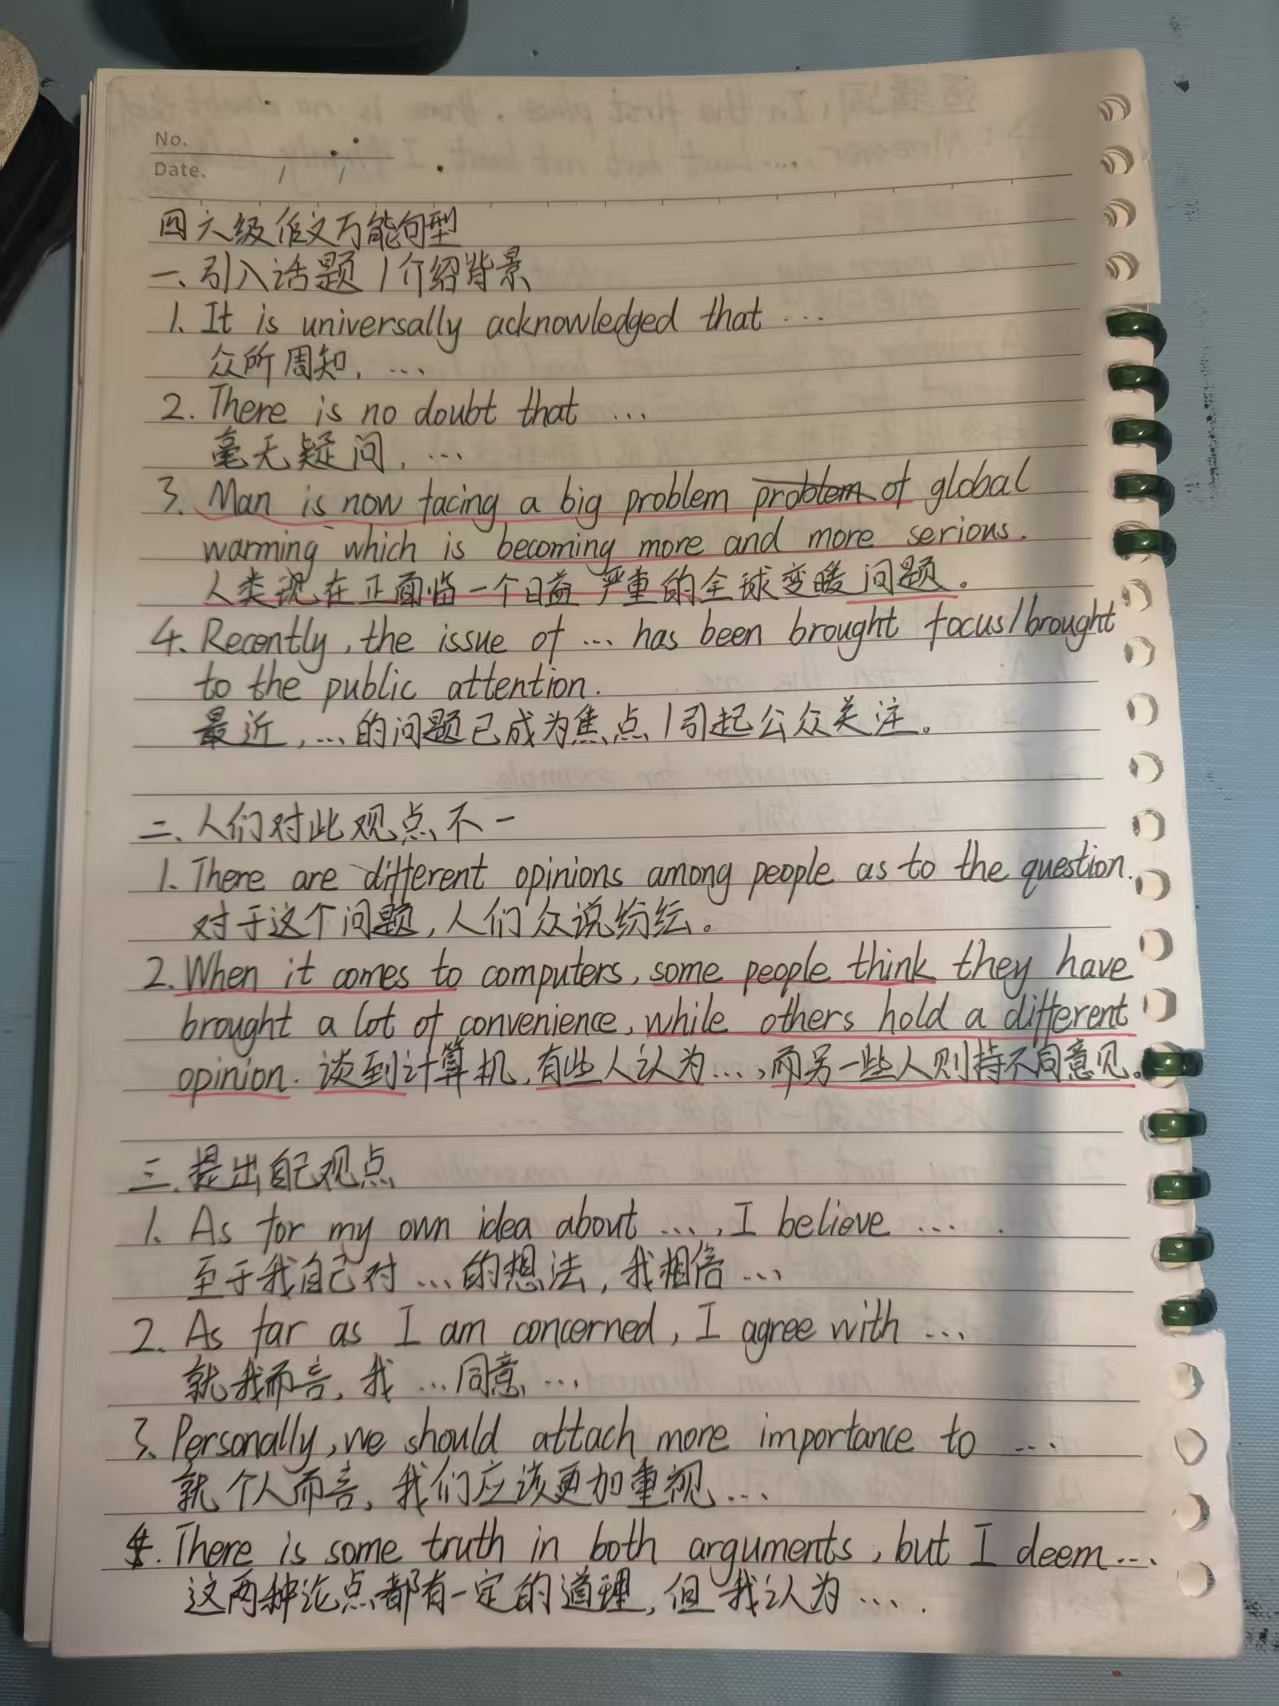 No.
Date. / /
四六级作文万能句型
一、引入话题/介绍背景
1. It is universally acknowledged that ...
众所周知, ...
2. There is no doubt that ...
毫无疑问, ...
3. Man is now facing a big problem problem of global
warming which is becoming more and more serious.
人类现在正面临一个日益严重的全球变暖问题。
4. Recently, the issue of ... has been brought focus/brought
to the public attention.
最近, ...的问题已成为焦点/引起公众关注。
二、人们对此观点不一
1. There are different opinions among people as to the question.
对于这个问题, 人们众说纷纭。
2. When it comes to computers, some people think they have
brought a lot of convenience, while others hold a different
opinion. 谈到计算机, 有些人认为..., 而另一些人则持不同意见。
三、提出自己观点
1. As for my own idea about ..., I believe ... .
至于我自己对 ...的想法, 我相信 ...
2. As far as I am concerned, I agree with ...
就我而言, 我 ...同意, ...
3. Personally, we should attach more importance to ...
就个人而言, 我们应该更加重视...
4. There is some truth in both arguments, but I deem ...
这两种论点都有一定的道理, 但我认为 ... .